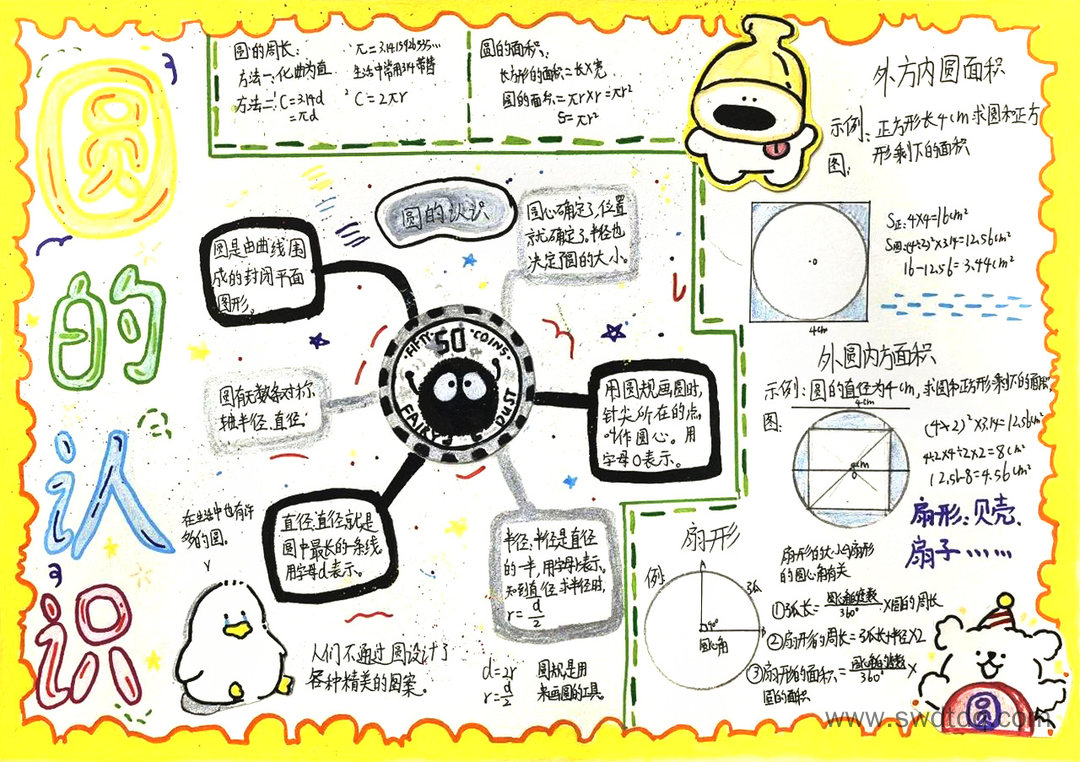 圆的认识
圆的周长:
方法一:化曲为直
方法二: C=3.14d
=πd
π=3.1415926535...
生活中常用3.14代替
C=2πr
圆的面积:
长方形的面积=长×宽
圆的面积=πr×r=πr²
S=πr²
圆的认识
圆是由曲线围
成的封闭平面
图形。
圆心确定了,位置
就确定了。半径也
决定了圆的大小。
圆有无数条对称
轴半径、直径
用圆规画圆时,
针尖所在的点,
叫作圆心。用
字母O表示。
直径:直径就是
圆中最长的一条线
用字母d表示。
半径:半径是直径
的一半,用字母r表示。
知到直径求半径时,
r=d/2
FIFTY 50 COINS
FAIRY'S DUST
在生活中也有许
多的圆。
人们不通过圆设计了
各种精美的图案。
d=2r
r=d/2
圆规是用
来画圆的工具
外方内圆面积
示例:正方形长4cm求圆和正方
形剩下的面积
图:
o
4cm
S正:4×4=16cm²
S圆:(4÷2)²×3.14=12.56cm²
16-12.56=3.44cm²
外圆内方面积
示例:圆的直径为4cm,求圆和正方形剩下的面积
图:
4cm
(4÷2)²×3.14=12.56cm²
4÷2×4÷2×2=8cm²
12.56-8=4.56cm²
扇形:贝壳、
扇子……
扇形
例:
A
弧
90°
B
圆心角
扇形的大小与扇形
的圆心角有关
①弧长=圆心角度数/360°×圆的周长
②扇形的周长=弧长+半径×2
③扇形的面积=圆心角的度数/360°×
圆的面积
圆